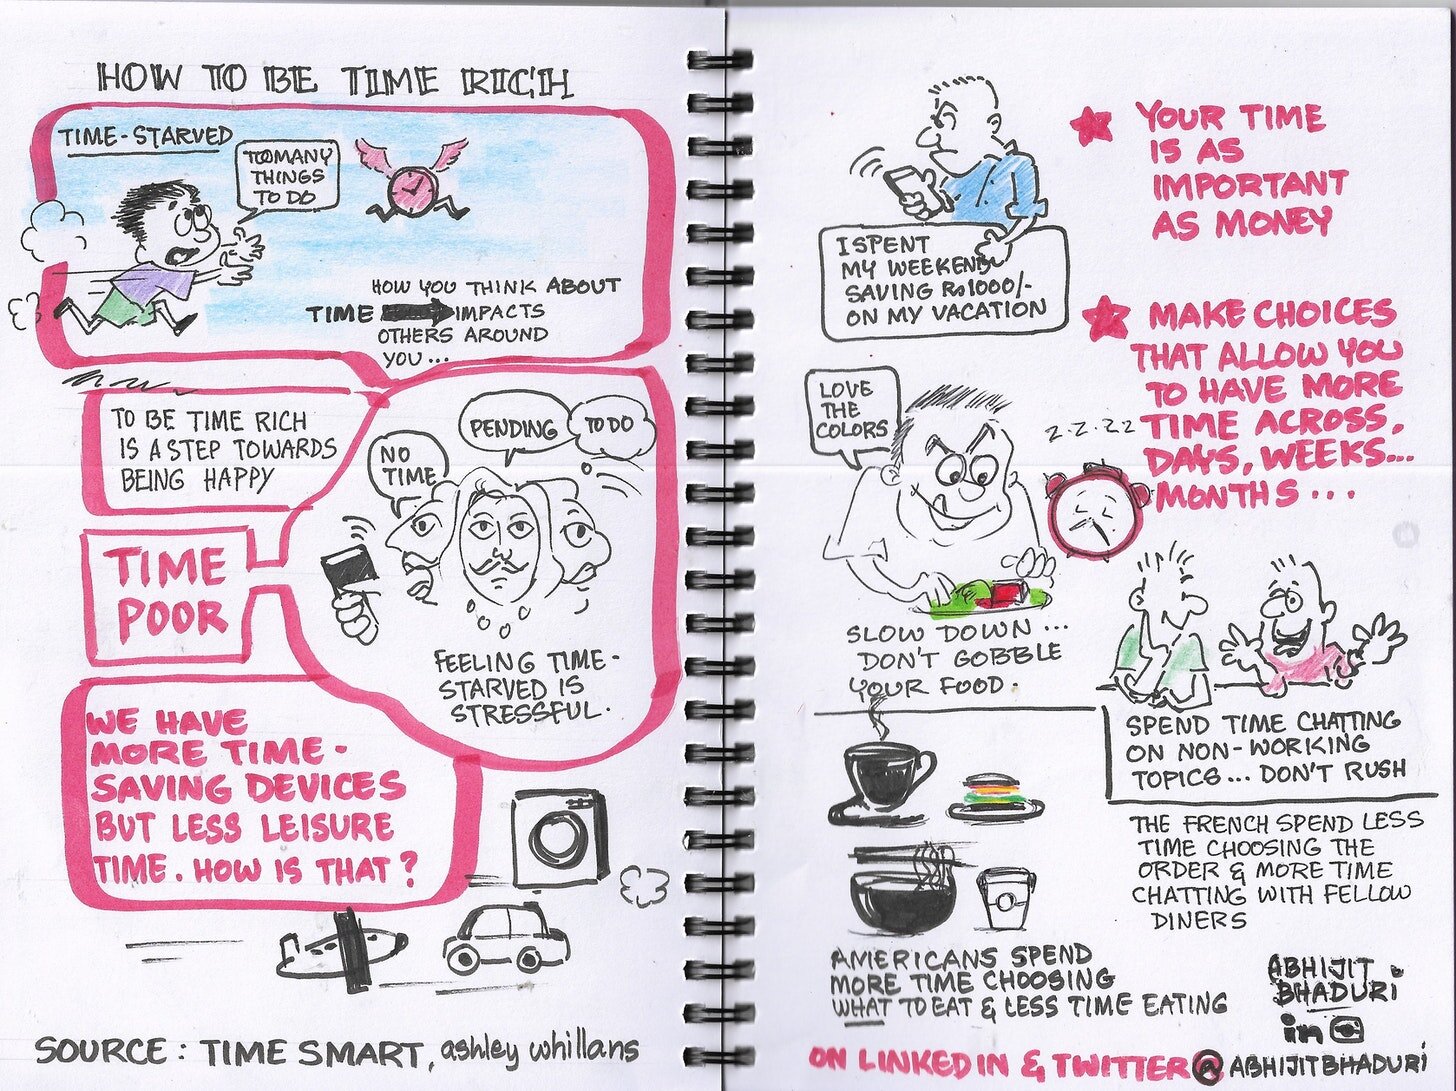 HOW TO BE TIME RICH
TIME-STARVED
TOO MANY
THINGS
TO DO
HOW YOU THINK ABOUT
TIME IMPACTS
OTHERS AROUND
YOU...
TO BE TIME RICH
IS A STEP TOWARDS
BEING HAPPY
NO
TIME
PENDING
TO DO
TIME
POOR
FEELING TIME-
STARVED IS
STRESSFUL.
WE HAVE
MORE TIME-
SAVING DEVICES
BUT LESS LEISURE
TIME. HOW IS THAT?
SOURCE: TIME SMART, ashley whillans
I SPENT
MY WEEKEND
SAVING Rs1000/-
ON MY VACATION
YOUR TIME
IS AS
IMPORTANT
AS MONEY
MAKE CHOICES
THAT ALLOW YOU
TO HAVE MORE
TIME ACROSS,
DAYS, WEEKS...
MONTHS...
LOVE
THE
COLORS
Z-Z-Z Z
SLOW DOWN...
DON'T GOBBLE
YOUR FOOD.
SPEND TIME CHATTING
ON NON-WORKING
TOPICS... DON'T RUSH
THE FRENCH SPEND LESS
TIME CHOOSING THE
ORDER & MORE TIME
CHATTING WITH FELLOW
DINERS
AMERICANS SPEND
MORE TIME CHOOSING
WHAT TO EAT & LESS TIME EATING
ABHIJIT
BHADURI
in
ON LINKEDIN & TWITTER @ABHIJITBHADURI